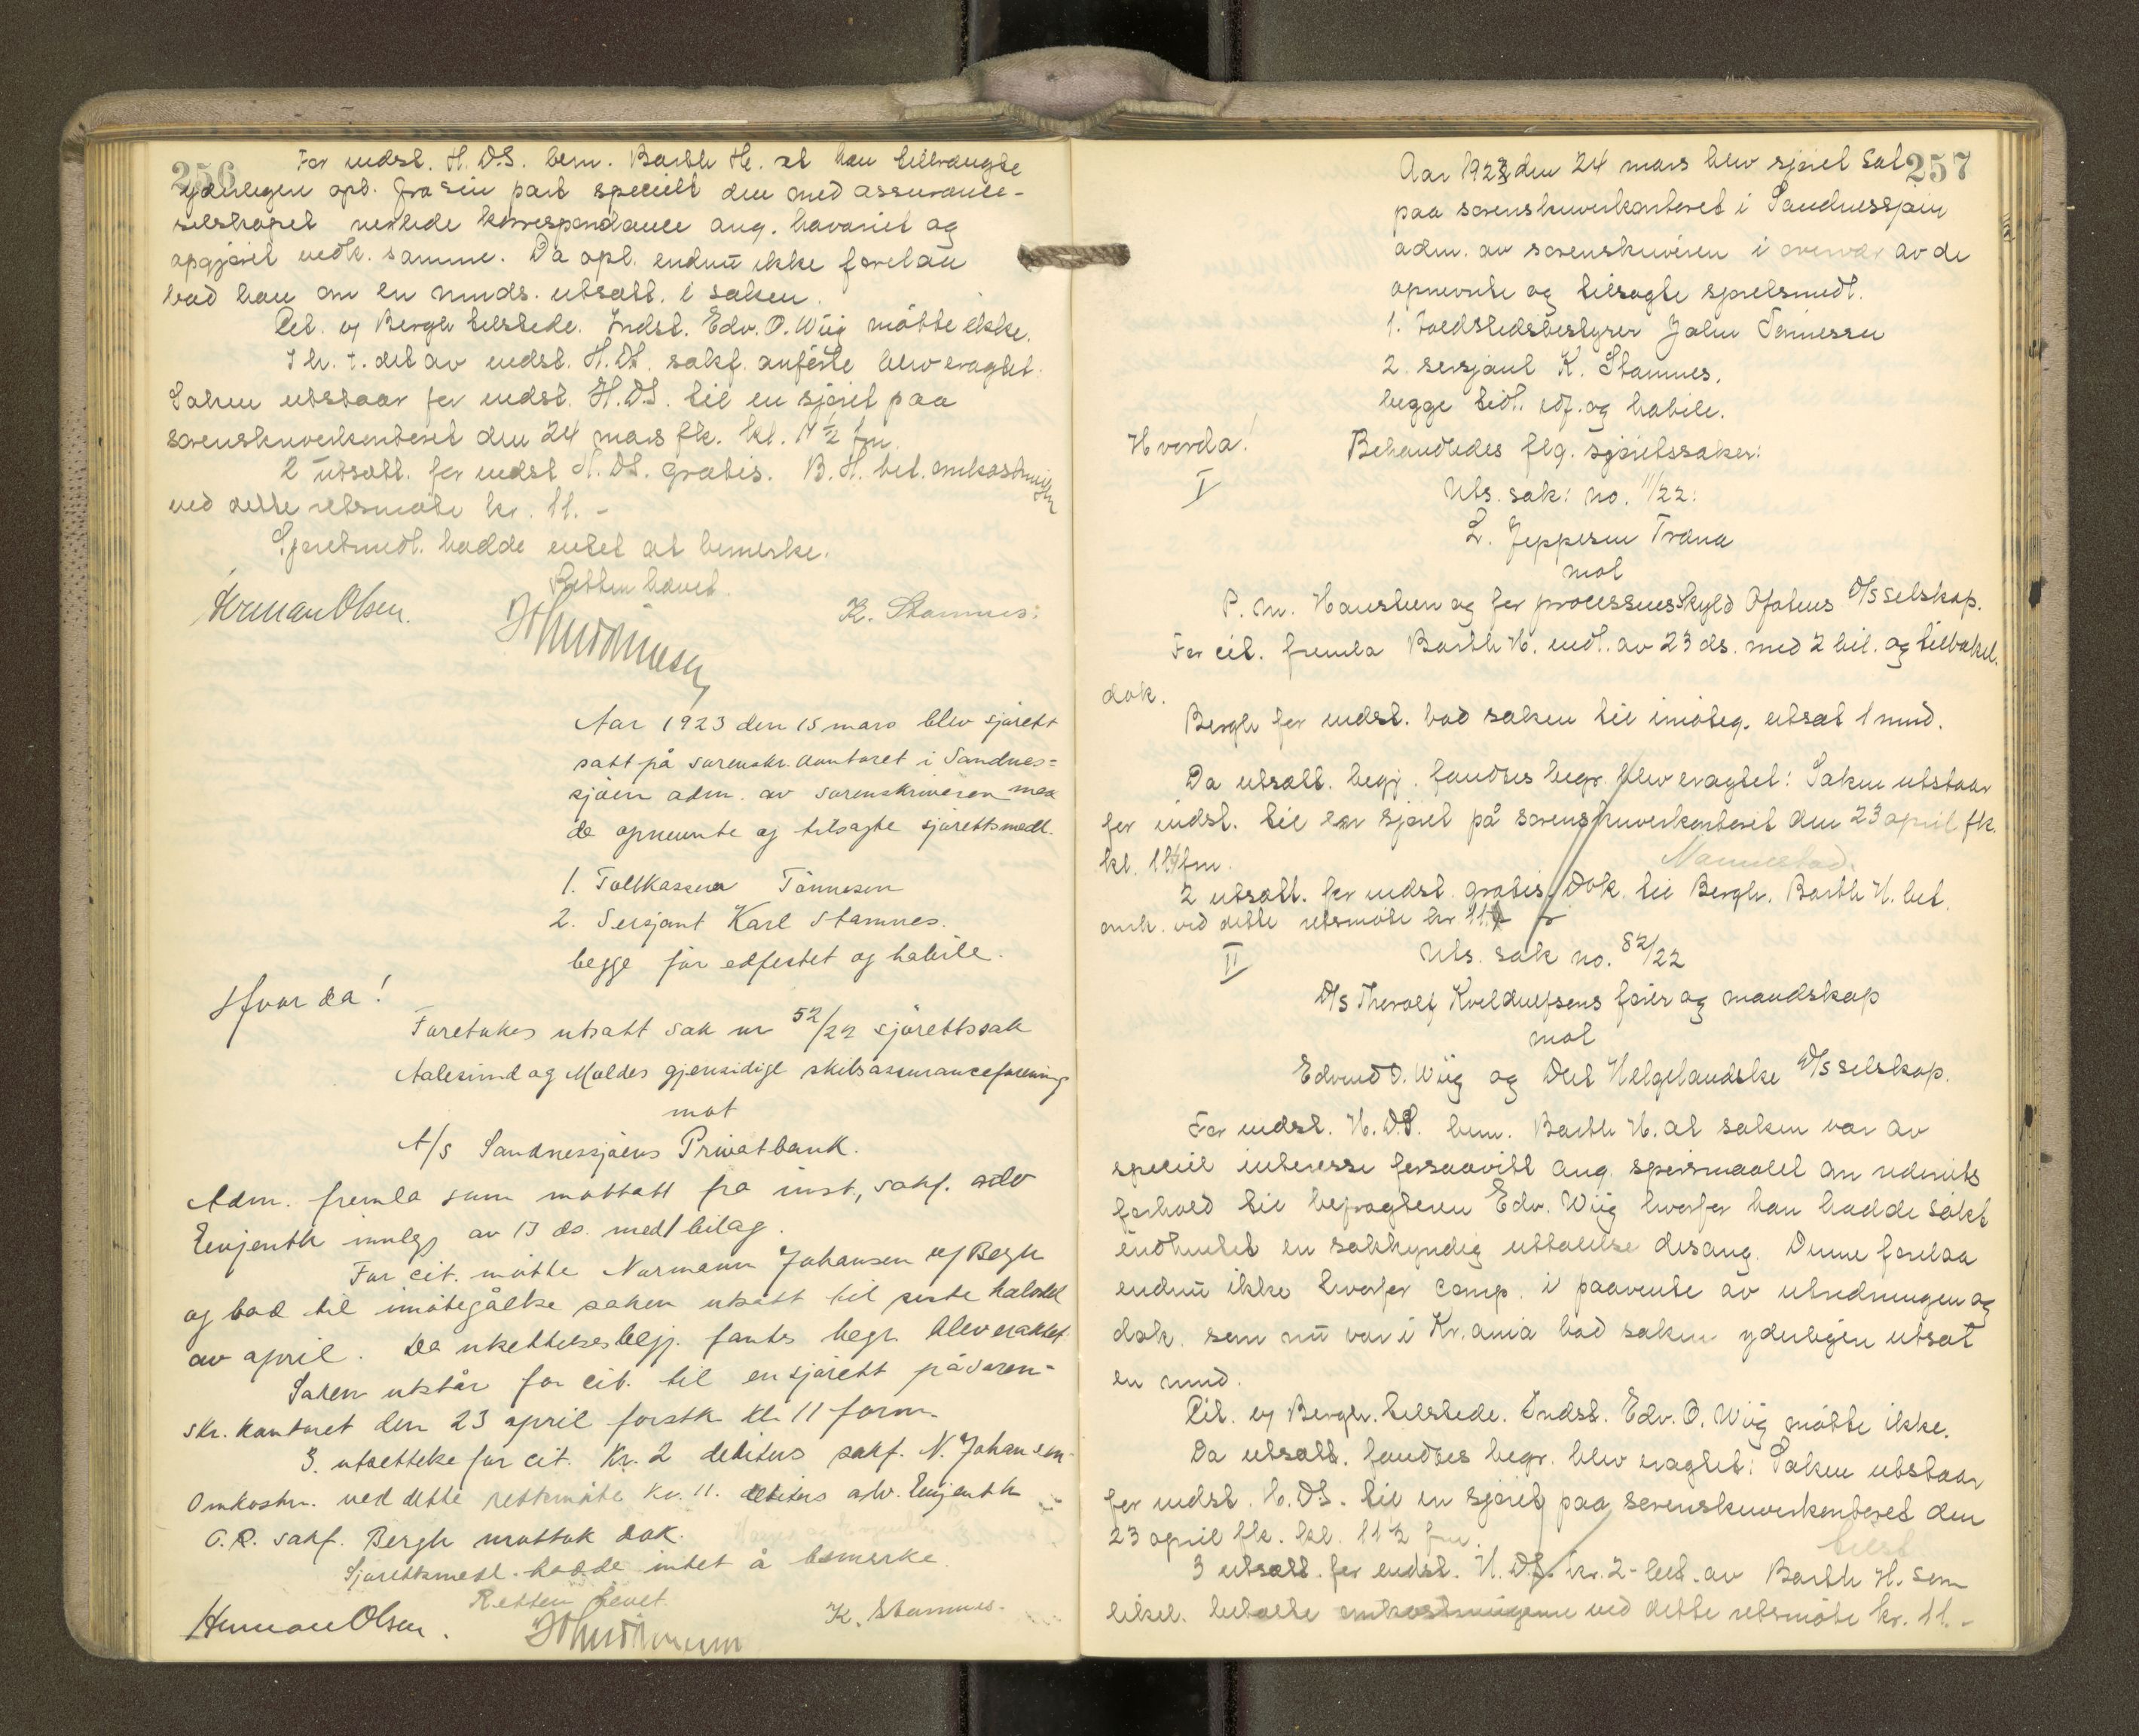 256
For indst. H.D.S. bem. Barth H. at han tiltrængte
yderligere opl. fra sin part specielt den med assurance-
selskapet verserende korrespondance ang. havariet og
opgjøret vedk. samme. Da opl. endnu ikke forelaa
bad han om en mnds. utsætt. i saken.
Cit. v/ Bergh tilstede. Indst. Edv. O. Wiig møtte ikke.
I h. t. det av indst. H.D.S. sakf. anførte blev eragtet:
Saken utstaar for indst. H.D.S. til en sjøret paa
sorenskriverkontoret den 24 mars fk. kl. 11 ½ fm.
2 utsætt. for indst H.D.S. gratis. B.H. bet. omkostningene
ved dette retsmøte kr. 11.-
Sjøretsmedl. hadde intet at bemerke.
Retten hævet.
Herman Olsen. K. Stamnes.
Aar 1923 den 15 mars blev sjørett
satt på sorenskr. kontoret i Sandnes=
sjøen adm. av sorenskriveren med
de opnevnte og tilsagte sjørettsmedl.
1. Tollkasserer Tönnesen
2. Sersjant Karl Stamnes.
begge før edfestet og habile.
Hvor da!
Foretokes utsatt sak nr 52/22 sjörettssak
Aalesund og Moldes gjensidige skibsassuranceforening
mot
A/S Sandnessjøens Privatbank.
Adm. fremla som mottatt fra inst, sakf. adv
Leinjenth innlegg av 13 ds. med 1 bilag.
For cit. møtte Normann Johansen v/ Bergh
og bad til imøtegåelse saken utsatt til siste halvdel
av april. Da utsettelsesbegj. fantes begr. blev eraktet
Saken utstår for cit. til en sjørett på soren=
skr. kontoret den 23 april førstk kl. 11 form.
3. utsettelse for cit. Kr. 2 debiters sakf. N. Johansen.
Omkostn. ved dette rettsmøte kr. 11. debiters adv. Leinjenth
O.R. sakf. Bergh mottok dok.
Sjørettsmedl. hadde intet å bemerke.
Retten hevet.
Herman Olsen. K. Stamnes.
257
Aar 1923 den 24 mars blev sjøret sat
paa sorenskriverkontoret i Sandnessjøen
adm. av sorenskriveren i overvær av de
opnevnte og tilsagte sjøretsmedl.
1. toldstedsbestyrer John Tønnessen
2. sersjant K. Stamnes.
begge tidl. edf. og habile.
Hvorda!
Behandledes flg. sjøretssaker:
I
Uts. sak: no. 11/22:
L. Jeppesen Træna
mot
P. M. Hansteen og for processens skyld Ofotens D/S selskap.
For cit. fremla Barth H. indl. av 23 ds. med 2 bil. og tilbakel.
dok.
Bergh for indst. bad saken til imøteg. utsat 1 mnd.
Da utsætt. begj. fandtes begr. blev eragtet: Saken utstaar
for indst. til en sjøret på sorenskriverkontoret den 23 april fk.
kl. 11 fm.
2 utsætt. for indst. gratis. Dok. til Bergh. Barth H. bet.
omk. ved dette retsmøte kr. 11.
II
Uts. sak no. 82/22
D/S Thorolf Kveldulfsens fører og mandskap
mot
Edvard O. Wiig og Det Helgelandske D/S selskap.
For indst. H.D.S. bem. Barth H. at saken var av
speciel interesse forsaavidt ang. spørsmaalet om rederiets
forhold til befragteren Edv. Wiig hvorfor han hadde søkt
indhentet en sakkyndig uttalelse desang. Denne forelaa
endnu ikke hvorfor comp. i paavente av utredningen og
dok. som nu var i Kr.ania bad saken yderligere utsat
en mnd.
Cit. v/ Bergh. tilstede. Indst. Edv. O. Wiig møtte ikke.
Da utsætt. fandtes begr. blev eragtet: Saken utstaar
for indst. H.D.S. til en sjøret paa sorenskriverkontoret den
23 april fk. kl. 11 ½ fm.
3 utsætt. for indst. H.D.S. kr. 2- bet. av Barth H. som
likel. betalte omkostningene ved dette retsmøte kr. 11.-